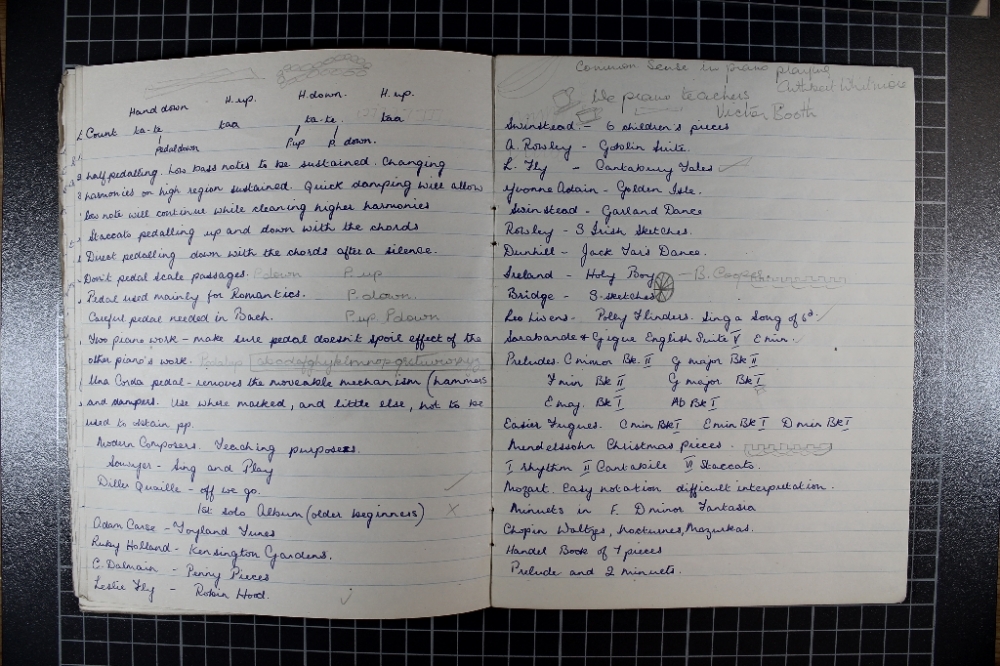 Hand down H. up. H. down. H. up.
Count ta-te taa ta-te. taa
pedal down P.up p. down.
half pedalling. Low bass notes to be sustained. Changing
harmonies on high region sustained. Quick damping will allow
low note will continue while cleaning higher harmonies
Staccato pedalling up and down with the chords
Direct pedalling down with the chords after a silence.
Don't pedal scale passages. P.down P. up
Pedal used mainly for Romantics. P. down.
Careful pedal needed in Bach. P. up P.down
Two piano work - make sure pedal doesn't spoil effect of the
other piano's work. abcdefghijklmnopqrstuvwxyz
Una Corda pedal - removes the moveable mechanism (hammers
and dampers. Use where marked, and little else, not to be
used to obtain pp.
Modern Composers. Teaching purposes.
Sawyer - Sing and Play
Diller Quaille - off we go.
1st solo Album (older beginners) X
Adam Carse - Toyland Tunes
Ruby Holland - Kensington Gardens.
C. Dalmain - Penny Pieces
Leslie Fly - Robin Hood.
Common Sense in piano playing
Cuthbert Whitmore
piano teachers
Victor Booth
Swinstead. - 6 children's pieces
A. Rowley - Goblin Suite.
L. Fly - Cantabury Tales
Yvonne Adain - Golden Isle.
Swinstead - Garland Dance
Rowley - 3 Irish Sketches.
Dunhill - Jack Tar's Dance.
Ireland - Holy Boy - B. Cooper
Bridge - 3 sketches
Leo Livens - Polly Flinders. Sing a Song of 6d.
Sarabande & Gigue English Suite V E min.
Preludes. C minor Bk. II G major Bk II
F min Bk II G major Bk I
E maj. Bk I Ab Bk I
Easier Fugues. C min Bk I E min Bk I D min Bk I
Mendelssohn Christmas pieces.
I rhythm II Cantabile VI Staccato.
Mozart. Easy notation difficult interpretation.
Minuets in F. D minor Fantasia
Chopin Waltzes, nocturnes, Mazurkas.
Handel Book of 7 pieces
Prelude and 2 minuets.